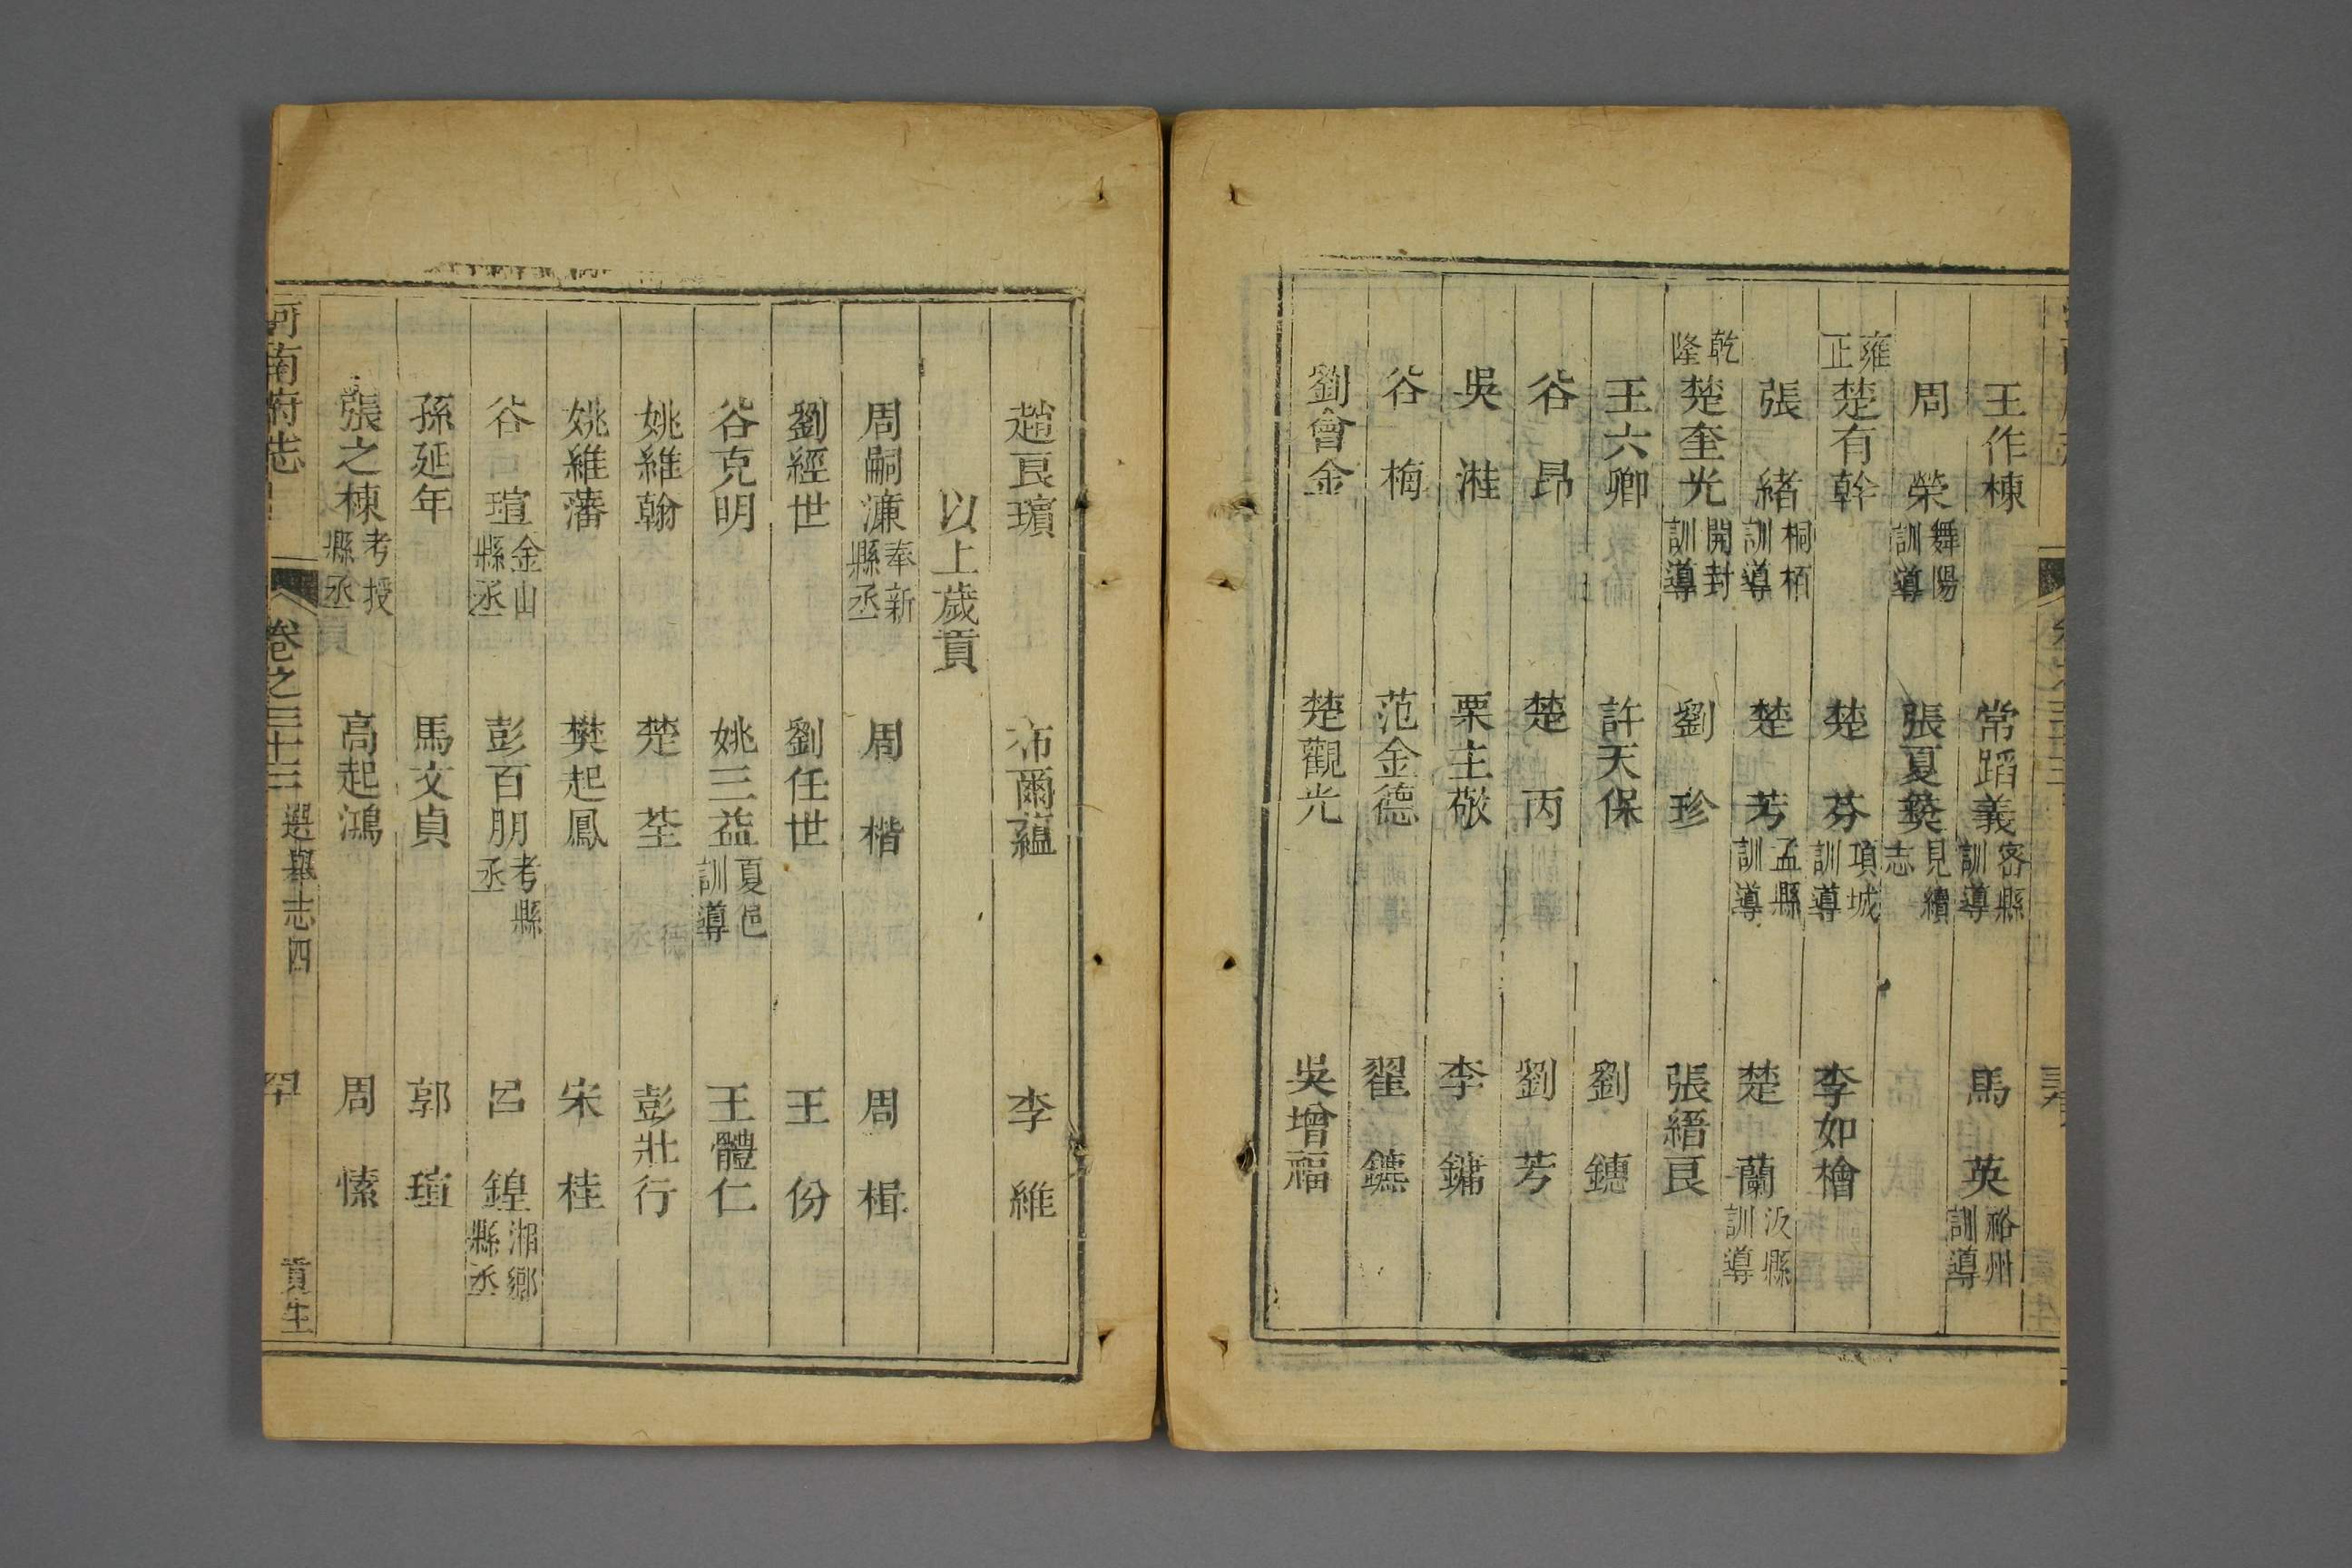 王作棟　常蹈義密縣訓導　馬英裕州訓導
周榮舞陽訓導　張夏葵見續志
雍正楚有幹　楚芬項城訓導　李如檜
張緒桐栢訓導　楚芳孟縣訓導　楚蘭汳縣訓導
乾隆楚奎光開封訓導　劉珍　張縉良
王六卿　許天保　劉鏸
谷昂　楚丙　劉芳
吳溎　栗主敬　李鏞
谷梅　范金德　翟鑣
劉會金　楚觀光　吳增福
趙良璸　沛爾蘊　李維
以上歲貢
周嗣濂奉新縣丞　周楷　周楫
劉經世　劉任世　王份
谷克明　姚三益夏邑訓導　王體仁
姚維翰　楚荃　彭壯行
姚維藩　樊起鳳　宋桂
谷瑄金山縣丞　彭百朋考縣丞　呂鍠湘鄉縣丞
孫延年　馬文貞　郭瑄
張之棟考授縣丞　高起鴻　周愫
河南府志　卷之三十三　選舉志四　罕　貢生